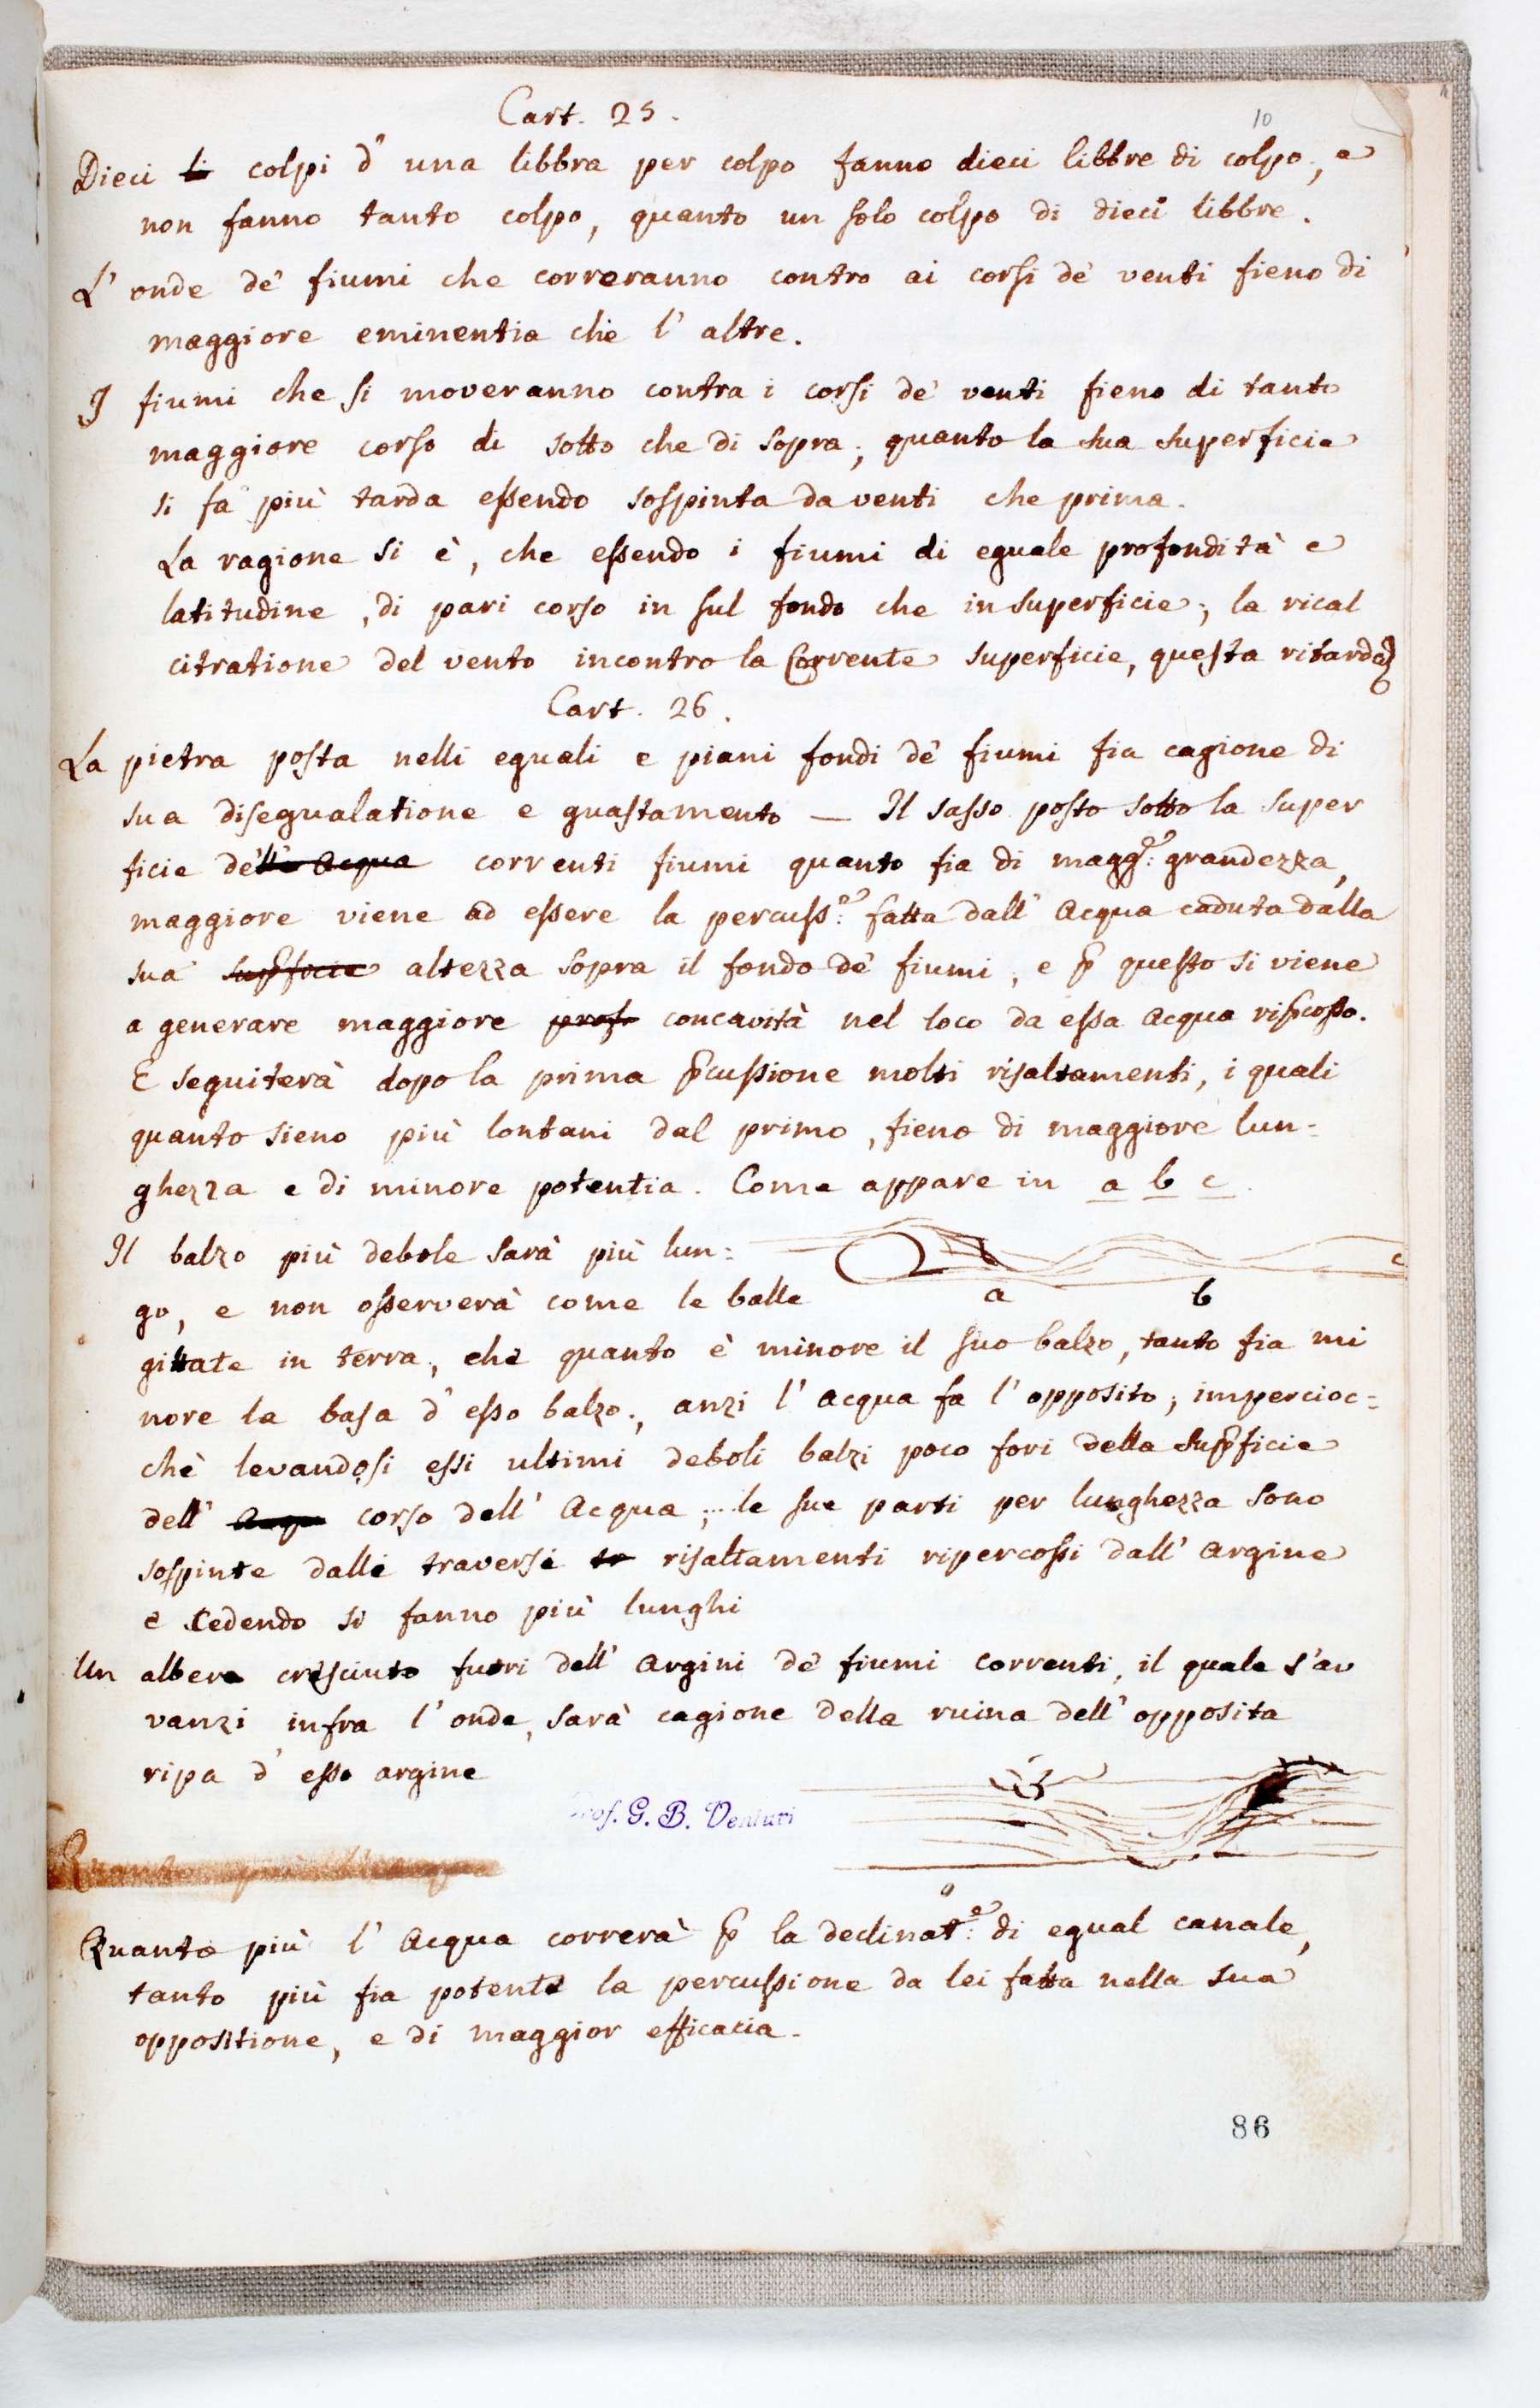 Cart. 25.
10
Dieci li colpi d' una libbra per colpo fanno dieci libbre di colpo, e
non fanno tanto colpo, quanto un solo colpo di dieci libbre.
L' onde de' fiumi che correranno contro ai corsi de' venti fieno di
maggiore eminentia che l' altre.
I fiumi che si moveranno contra i corsi de' venti fieno di tanto
maggiore corso di sotto che di sopra, quanto la sua superficie
si fa più tarda essendo sospinta da venti che prima.
La ragione si è, che essendo i fiumi di eguale profondità e
latitudine, di pari corso in sul fondo che in superficie, la rical
citratione del vento incontro la Corrente superficie, questa ritarda
Cart. 26.
La pietra posta nelli eguali e piani fondi de' fiumi fia cagione di
sua disegualatione e guastamento — Il sasso posto sotto la super
ficie delle Acqua correnti fiumi quanto fia di magg.e grandezza,
maggiore viene ad essere la percuss.e fatta dall' Acqua caduta dalla
sua supficie altezza sopra il fondo de' fiumi, e p questo si viene
a generare maggiore prof. concavità nel loco da essa Acqua ripcosso.
E seguiterà dopo la prima pcussione molti risaltamenti, i quali
quanto sieno più lontani dal primo, fieno di maggiore lun=
ghezza e di minore potentia. Come appare in a b c.
Il balzo più debole sarà più lun=
go, e non osserverà come le balle
a b c
gittate in terra, che quanto è minore il suo balzo, tanto fia mi
nore la basa d' esso balzo, anzi l' Acqua fa l' opposito; impercioc=
chè levandosi essi ultimi deboli balzi poco fori della supficie
dell' Acqu corso dell' Acqua, le sue parti per lunghezza sono
sospinte dalli traversi tr risaltamenti ripercossi dall' argine
e cedendo si fanno più lunghi
Un albero cresciuto fuori dell' argini de' fiumi correnti, il quale s'av
vanzi infra l' onde, sarà cagione della ruina dell' opposita
ripa d' esso argine
Prof. G. B. Venturi
Quanto più l'acqua
Quanto più l' Acqua correrà p la declinat.e di egual canale,
tanto più fia potente la percussione da lei fatta nella sua
oppositione, e di maggior efficacia.
86